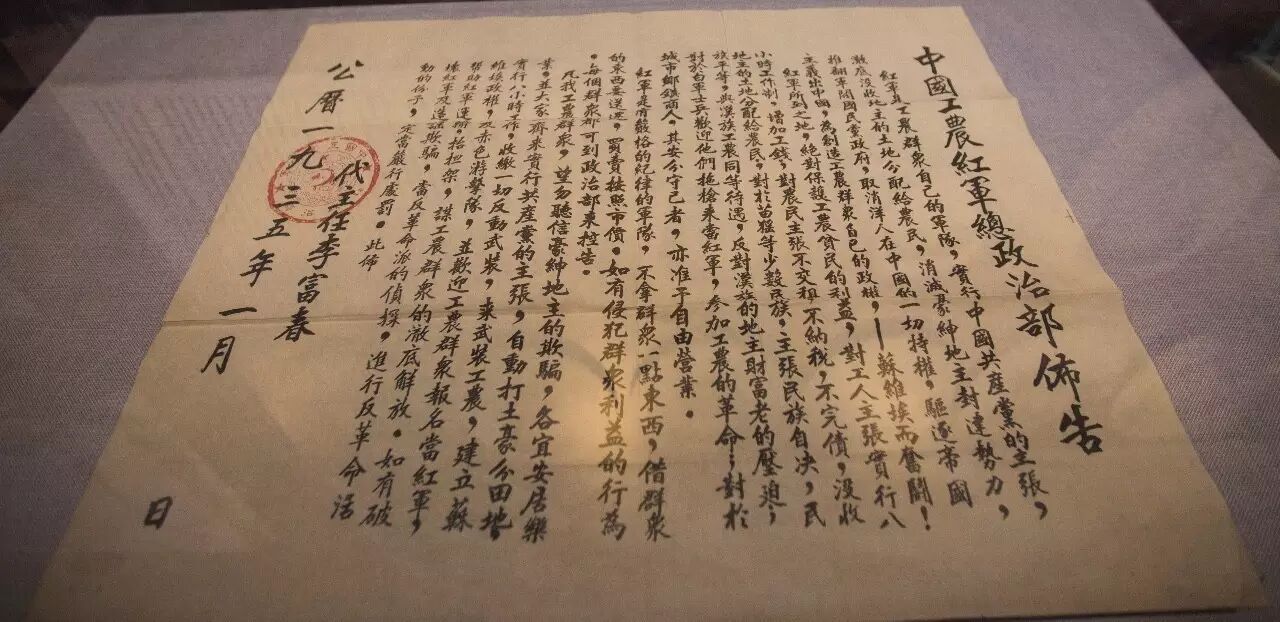 中國工農紅軍總政治部佈告
紅軍是工農群衆自己的軍隊，實行中國共産黨的主張，
澈底沒收地主的土地分配給農民，消滅豪紳地主封建勢力，
推翻軍閥國民黨政府，取消洋人在中國的一切特權，驅逐帝國
主義出中國，為創造工農群衆自己的政權，——蘇維埃而奮鬪！
紅軍所到之地，絕對保護工農貧民的利益，對工人主張實行八
小時工作制，增加工錢，對農民主張不交租不納稅，不完債，沒收
地主的土地分配給農民，對於苗猺等少數民族，主張民族自決，民
族平等，與漢族工農同等待遇，反對漢族的地主財富老的壓迫；
對於白軍士兵歡迎他們拖槍來當紅軍，參加工農的革命；對於
城市鄉鎮商人，其安分守己者，亦准予自由營業。
紅軍是有嚴格的紀律的軍隊，不拿群衆一點東西，借群衆
的東西要送還，買賣按照市價。如有侵犯群衆利益的行為
。每個群衆都可到政治部來控告。
凡我工農群衆，望勿聽信豪紳地主的欺騙，各宜安居樂
業，並大家齊來實行共産黨的主張，自動打土豪分田地，
實行八小時工作，收繳一切反動武裝，來武裝工農，建立蘇
維埃政權，及赤色游擊隊，並歡迎工農群衆報名當紅軍，
幫助紅軍運輸抬担架，謀工農群衆的澈底解放。如有破
壞紅軍及造謠欺騙，當反革命派的偵探，進行反革命活
動的份子，定當嚴行處罰。此佈
代主任李富春
公曆一九三五年一月 日